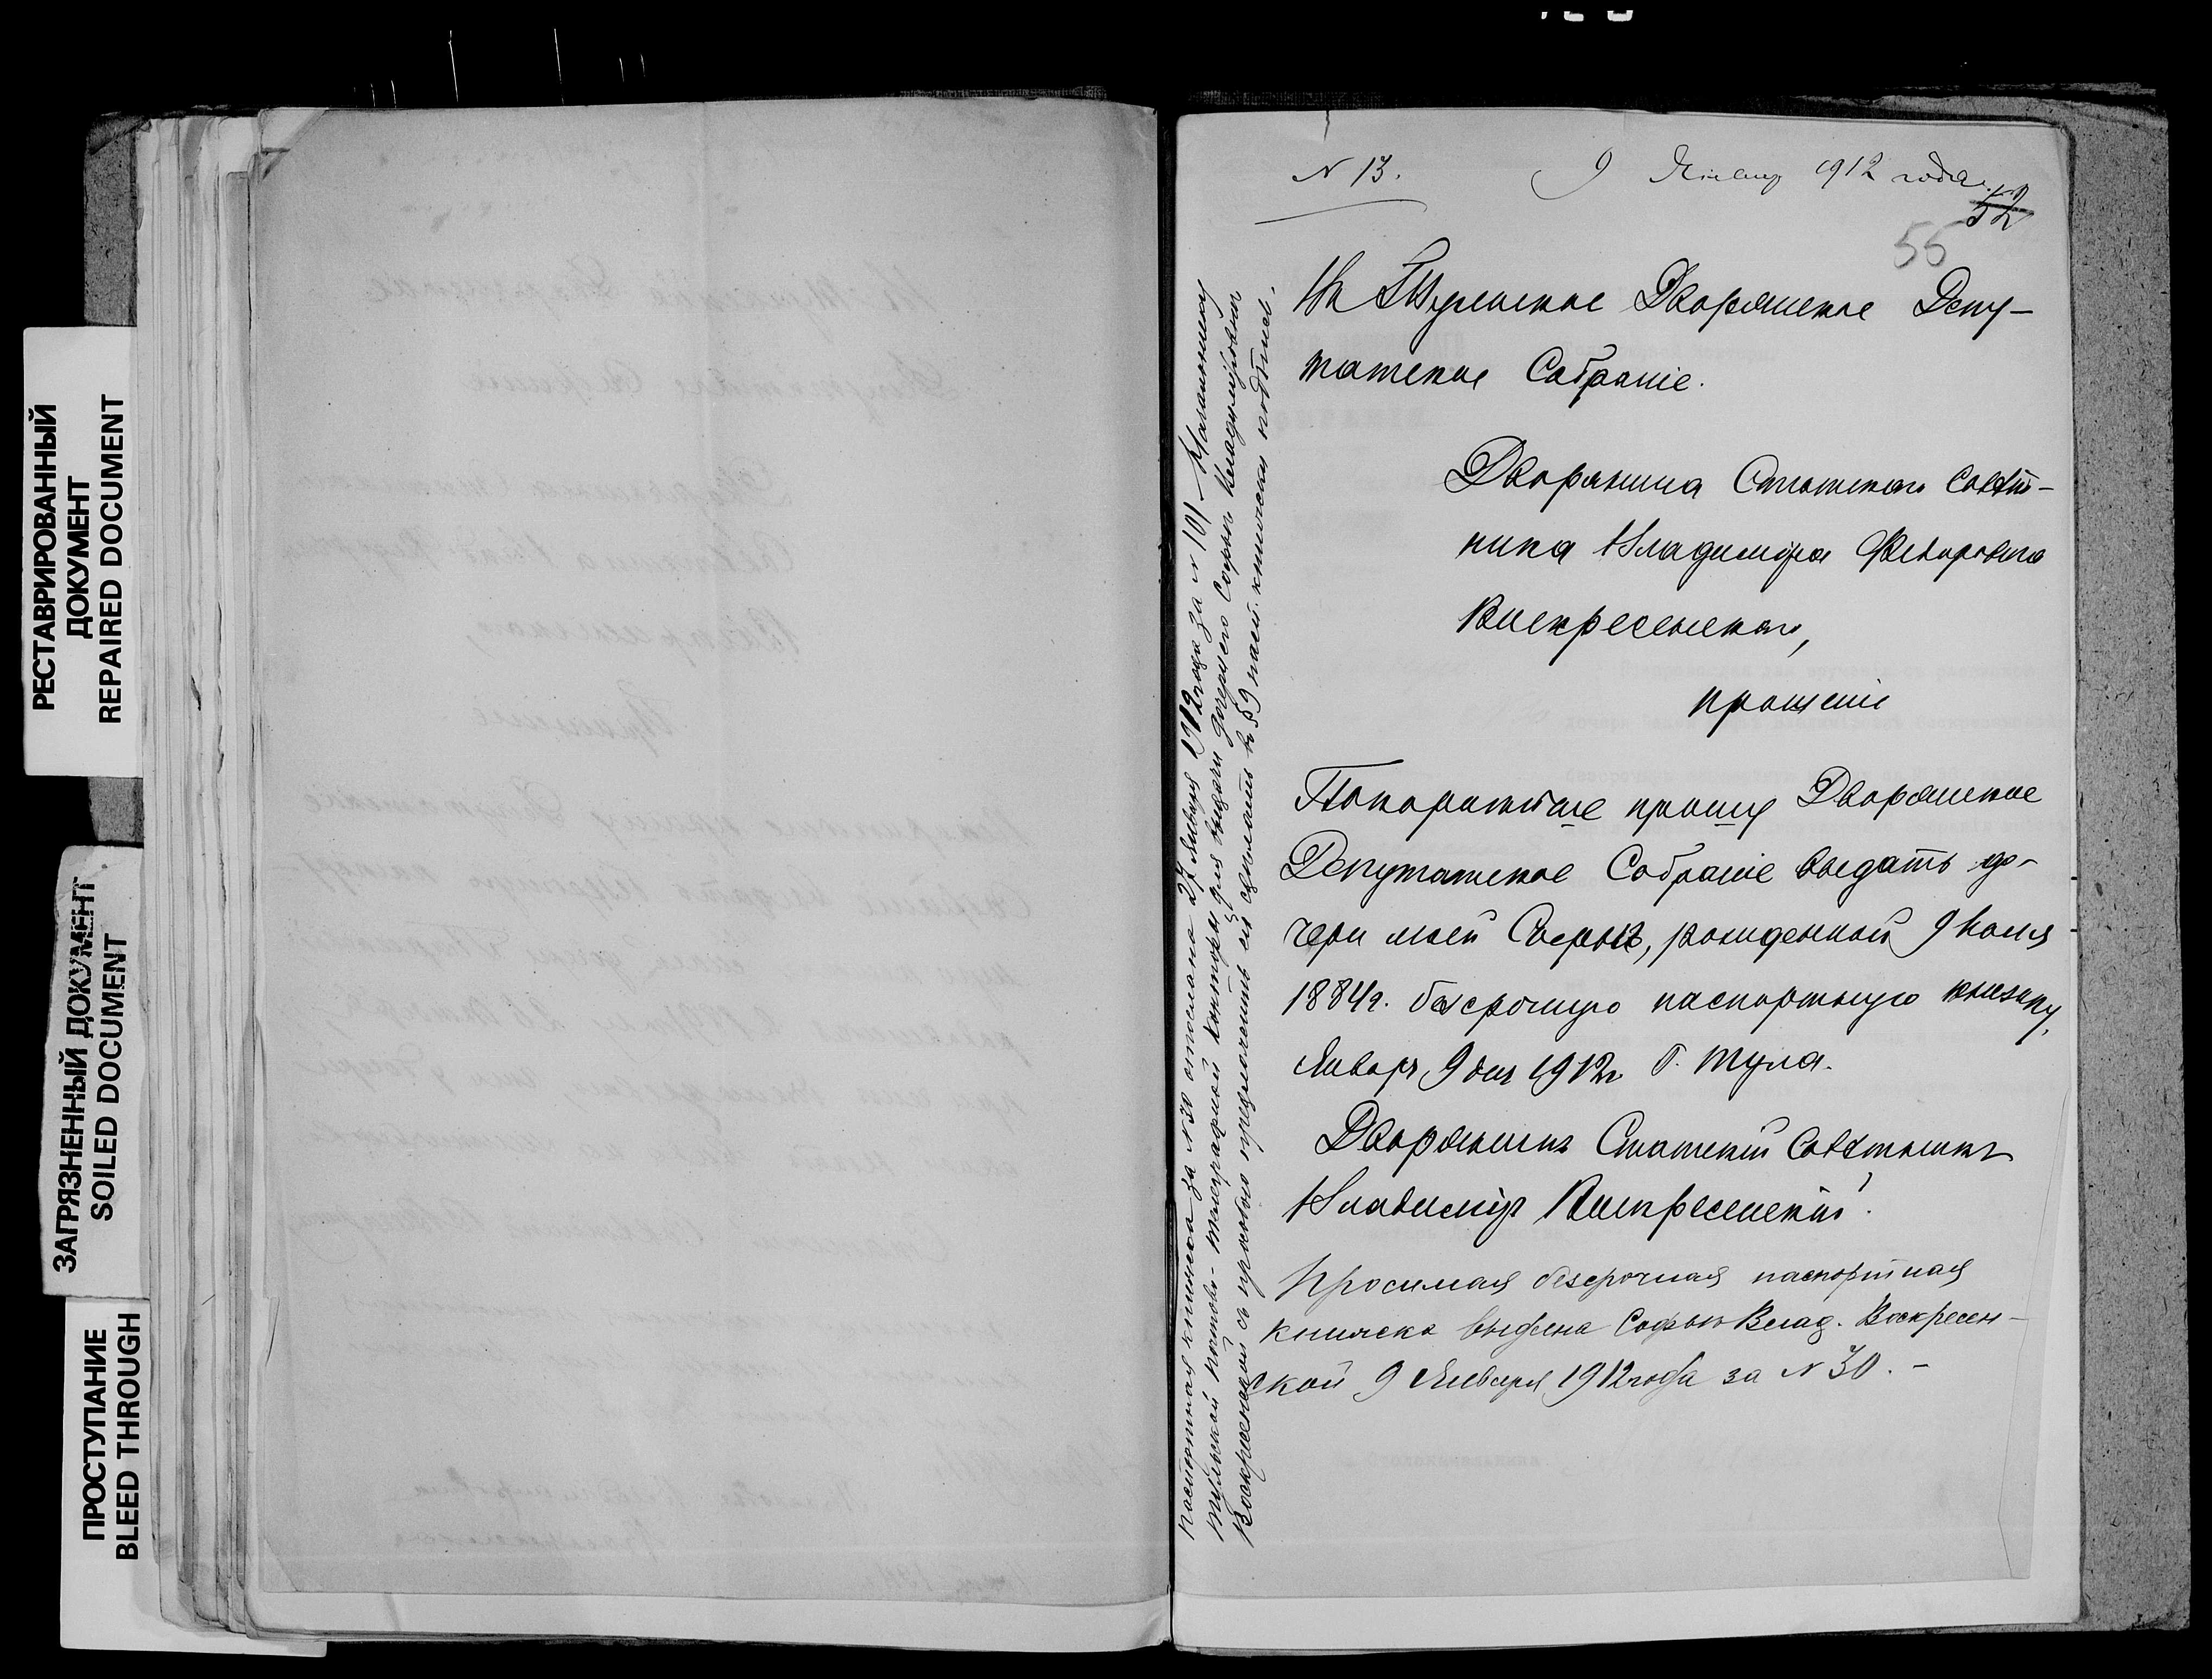 РЕСТАВРИРОВАННЫЙ
ДОКУМЕНТ
REPAIRED DOCUMENT
ЗАГРЯЗНЕННЫЙ ДОКУМЕНТ
SOILED DOCUMENT
ПРОСТУПАНИЕ
BLEED THROUGH
N 13.
9 Январ 1912 года
52
55
Въ Тульское Дворянское Депу-
татское Собраніе.
Дворянина Статскаго Совѣт-
ника Владиміра Федоровича
Воскресенскаго,
прошеніе
Покорнѣйше прошу Дворянское
Депутатское Собраніе выдать до-
чери моей Софьѣ, рожденной 9 Юля
1884 г. безсрочную паспортную книжку.
Январь 9 дня 1912 г. Г. Тула.
Дворянинъ Статскій Совѣтникъ
Владиміръ Воскресенскій.
Просимая безсрочная паспортная
книжка выдана Софьѣ Влад. Воскресен-
ской 9 Января 1912 года за N 30. -
Паспортная книжка за N 30 отослана 27 Января 1912 года за N 101 Начальнику
Тульской почтово-телеграфной конторы для выдачи дочери его Софьѣ Владиміровнѣ
Воскресенской съ просьбою предложить ей сдѣлать въ 9 пасп. книжки подпись.